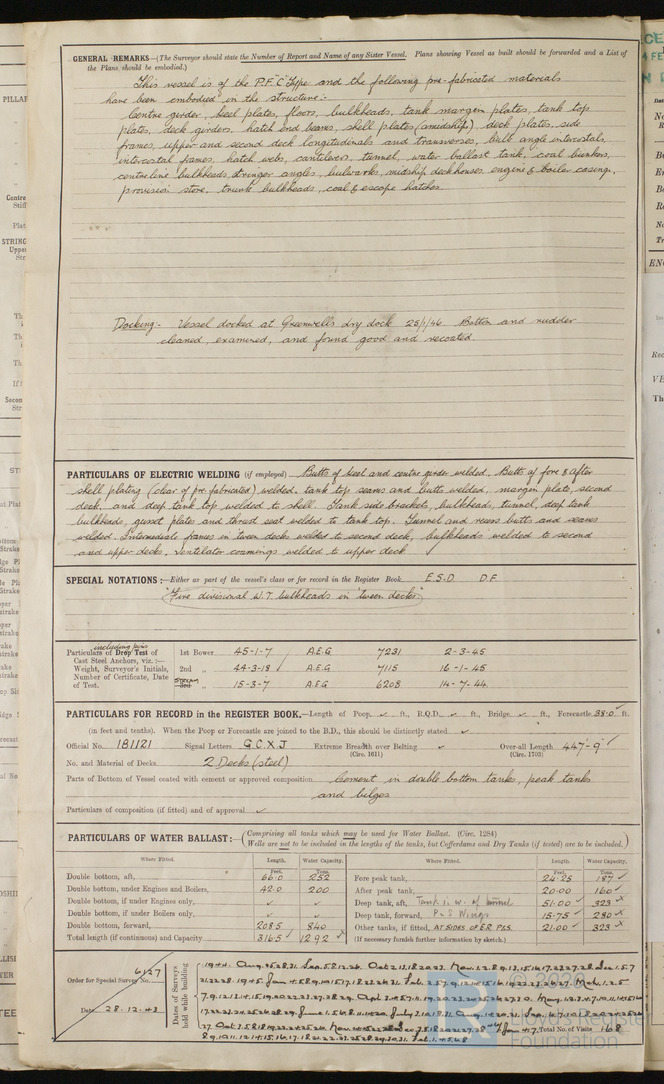 GENERAL REMARKS—(The Surveyor should state the Number of Report and Name of any Sister Vessel. Plans showing Vessel as built should be forwarded and a List of
the Plans should be embodied.)
This vessel is of the P.F. "C" Type and the following pre-fabricated materials
have been embodied in the structure:-
Centre girder, keel plates, floors, bulkheads, tank margin plates, tank top
plates, deck girders, hatch end beams, shell plates (midship) deck plates, side
frames, upper and second deck longitudinals and transverses, bulb angle intercostals,
intercostal frames, hatch webs, cantilevers, tunnel, water ballast tank, coal bunkers,
centreline bulkheads, stringer angles, bulwarks, midship deckhouses, engine & boiler casings,
provision store, trunk bulkheads, coal & escape hatches.
Docking:- Vessel docked at Greenwells dry dock 25/1/46 Bottom and rudder
cleaned, examined, and found good and recoated.
PARTICULARS OF ELECTRIC WELDING (if employed) Butts of keel and centre girder welded. Butts of fore & after
shell plating (clear of pre-fabricated) welded, tank top seams and butts welded, margin plate, second
deck, and deep tank top welded to shell. Tank side brackets, bulkheads, tunnel, deep tank
bulkheads, gusset plates and thrust seat welded to tank top. Tunnel and recess butts and seams
welded. Intermediate frames in tween decks welded to second deck, bulkheads welded to second
and upper decks, ventilator coamings welded to upper deck. ✓
SPECIAL NOTATIONS:—Either as part of the vessel's class or for record in the Register Book. E.S.D. D.F.
"Five divisional W.T. bulkheads in 'tween decks"
Particulars of Drop Test of
Cast Steel Anchors, viz.:—
Weight, Surveyor's Initials,
Number of Certificate, Date
of Test.
1st Bower 45-1-7 A.E.G 7231 2-3-45
2nd „ 44-3-18 A.E.G 7115 16-1-45
STREAM 3rd „ 15-3-7 A.E.G 6208 14-7-44
PARTICULARS FOR RECORD in the REGISTER BOOK.—Length of Poop ✓ ft., R.Q.D. ✓ ft., Bridge ✓ ft., Forecastle 38.0 ft.
(in feet and tenths). When the Poop or Forecastle are joined to the B.D., this should be distinctly stated ✓
Official No. 181121 Signal Letters G.C.X.J Extreme Breadth over Belting ✓ Over-all Length 447'-9"
(Circ. 1611) (Circ. 1703)
No. and Material of Decks 2 Decks (steel)
Parts of Bottom of Vessel coated with cement or approved composition Cement in double bottom tanks, peak tanks
and bilges
Particulars of composition (if fitted) and of approval ✓
PARTICULARS OF WATER BALLAST:—(Comprising all tanks which may be used for Water Ballast. (Circ. 1284)
Wells are not to be included in the lengths of the tanks, but Cofferdams and Dry Tanks (if tested) are to be included.)
Where Fitted. Length. Water Capacity. Where Fitted. Length. Water Capacity.
Feet. Tons. Feet. Tons.
Double bottom, aft, 66.0 252 Fore peak tank, 24.25 187 ✓
Double bottom, under Engines and Boilers, 42.0 200 After peak tank, 20.00 160 ✓
Double bottom, if under Engines only, ✓ ✓ Deep tank, aft, Tank is w. of tunnel 51.00 ✓ 323 x
Double bottom, if under Boilers only, ✓ ✓ Deep tank, forward, P & S Wings 15.75 ✓ 280 x
Double bottom, forward, 208.5 840 Other tanks, if fitted, AT SIDES OF E.R P&S. 21.00 ✓ 323 x
Total length (if continuous) and Capacity 316.5 ✓ 1292 x (If necessary furnish further information by sketch.)
Order for Special Survey No. 6127
Date 28.12.43
Dates of Surveys
held while building
Total No. of Visits 168
© 2020
Lloyd's Register
Foundation